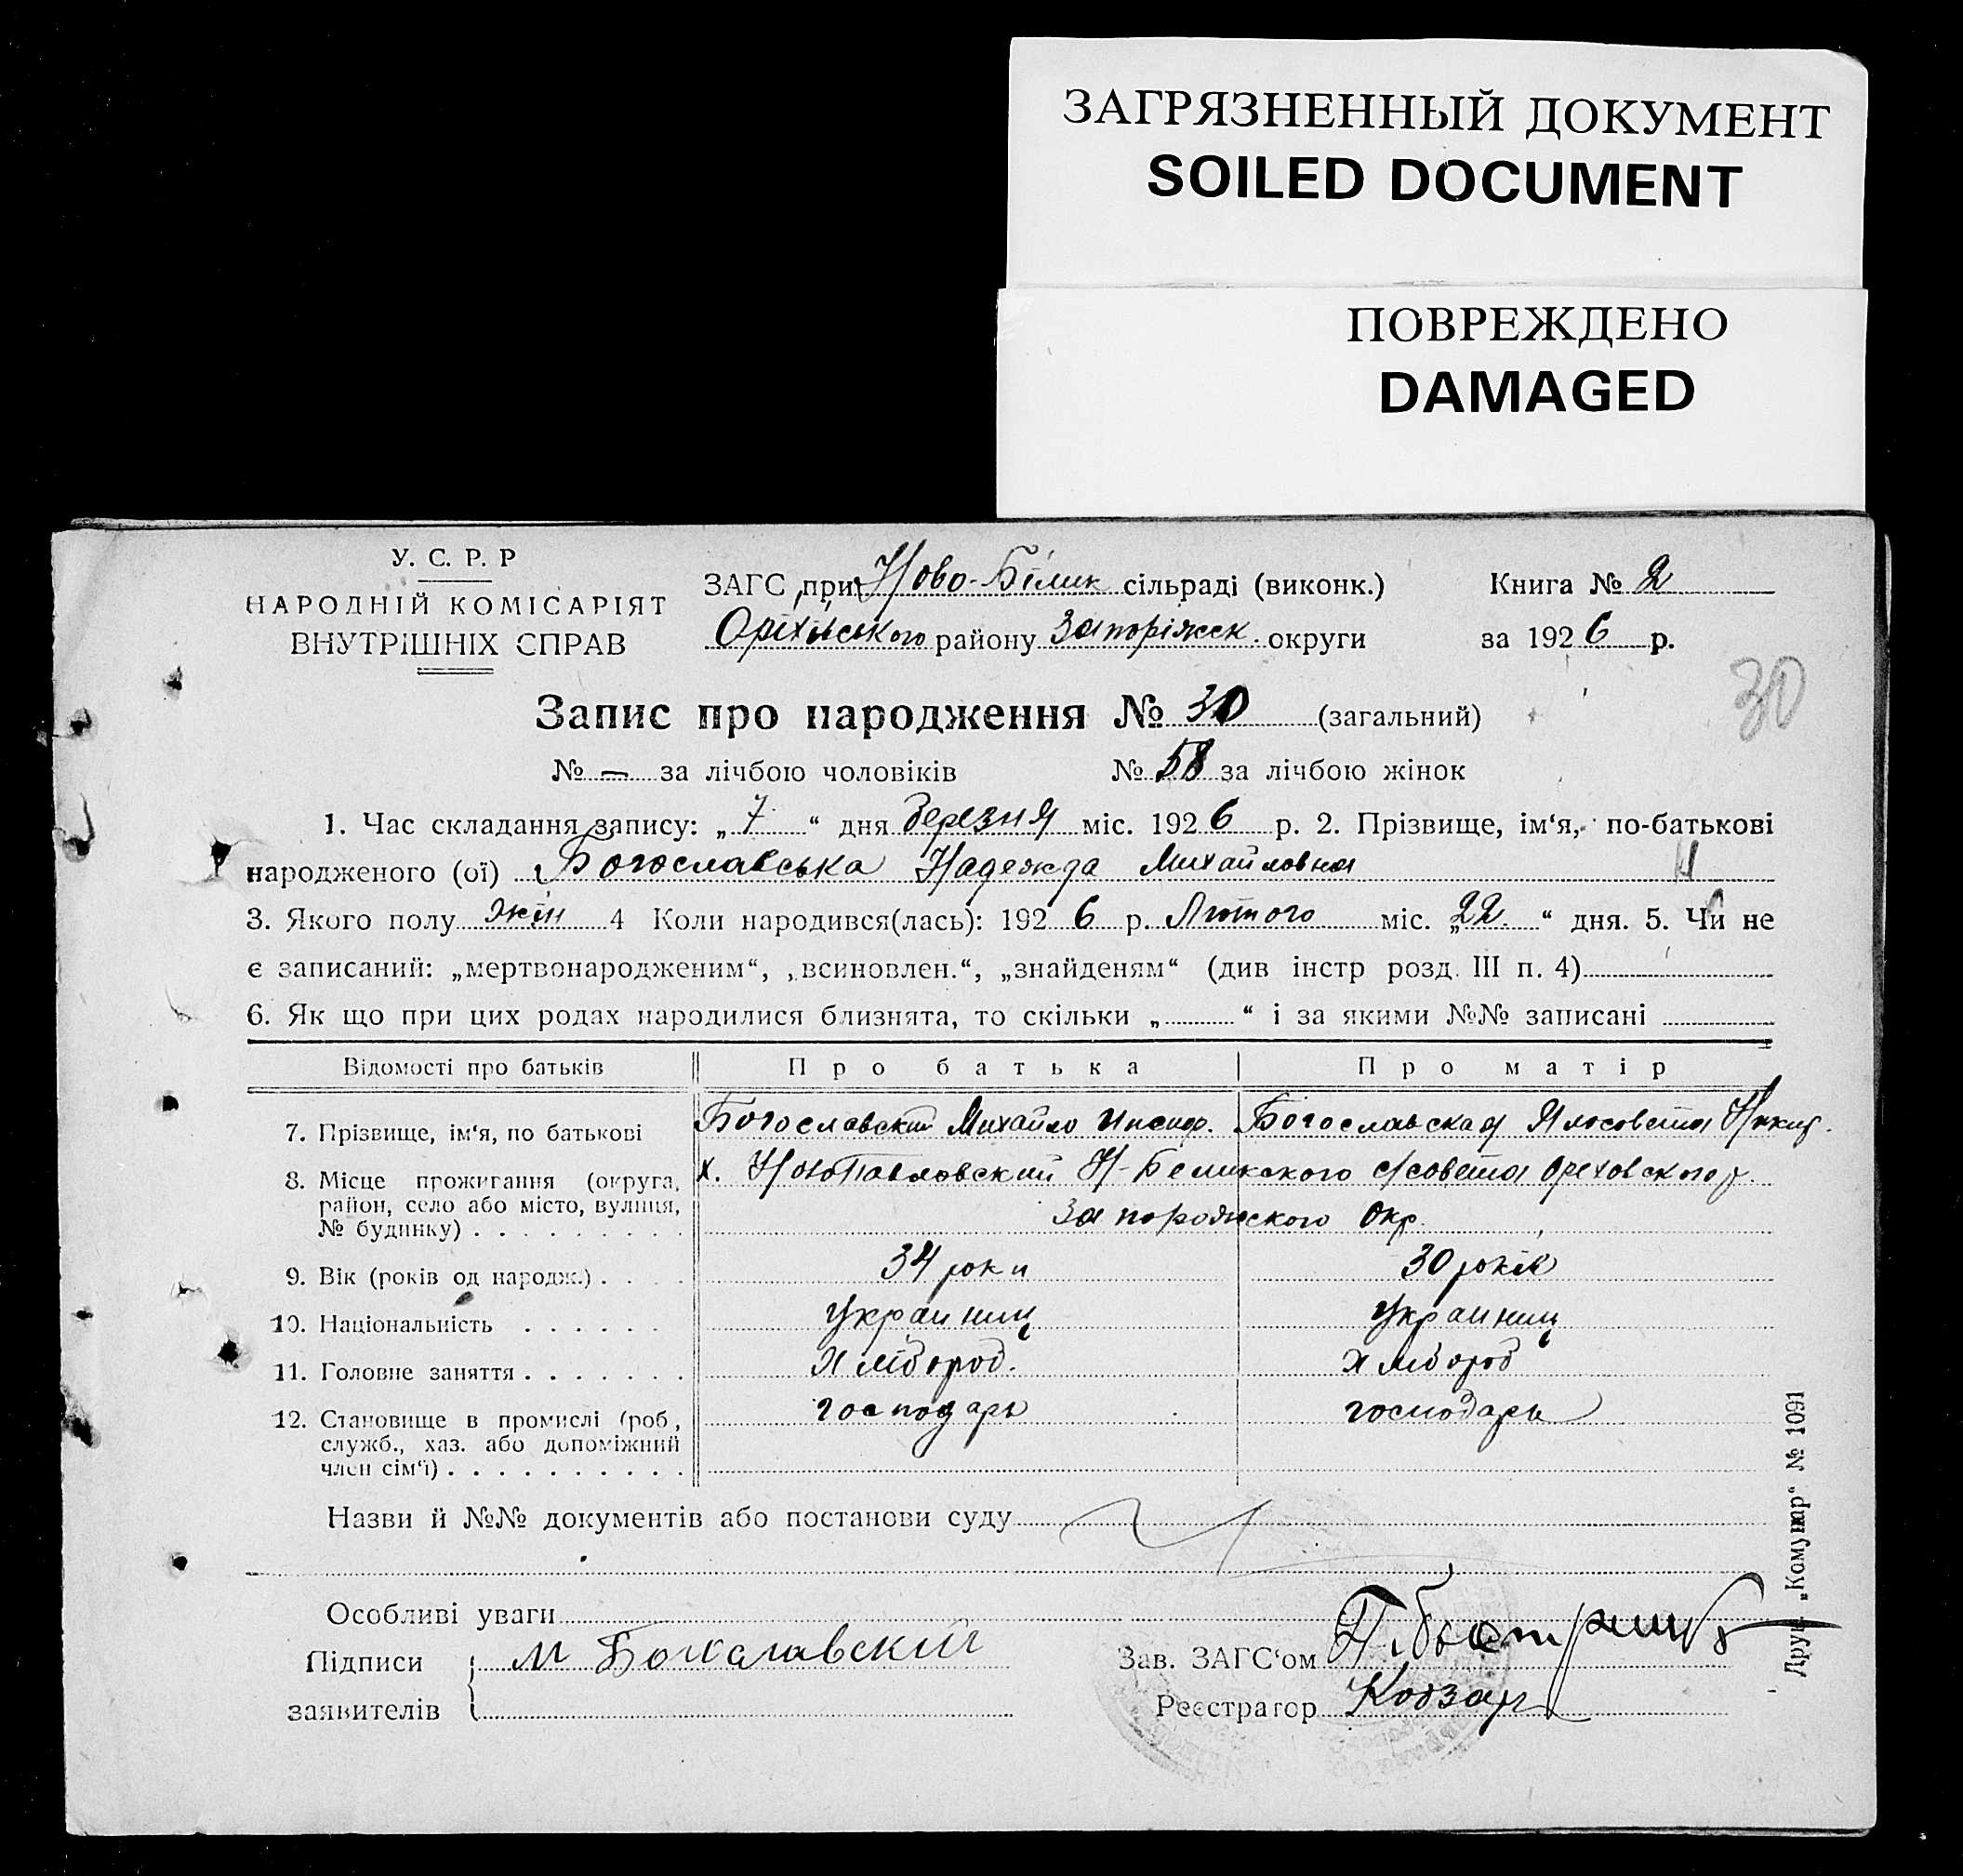 ЗАГРЯЗНЕННЫЙ ДОКУМЕНТ
SOILED DOCUMENT
ПОВРЕЖДЕНО
DAMAGED
У. С. Р. Р
НАРОДНІЙ КОМІСАРІЯТ
ВНУТРІШНІХ СПРАВ
ЗАГС при Ново-Білик сільраді (виконк.) Книга № 2
Оріхівського району Запоріжськ. округи за 1926 р.
30
Запис про народження № 30 (загальний)
№ — за лічбою чоловіків № 58 за лічбою жінок
1. Час складання запису: „ 7 “ дня березня міс. 1926 р. 2. Прізвище, ім‘я, по-батькові
народженого (ої) Богославська Надежда Михайловна
3. Якого полу жін 4 Коли народився(лась): 1926 р. Лютого міс. „ 22. “ дня. 5. Чи не
є записаний: „мертвонародженим“, „всиновлен.“, „знайденям“ (див інстр розд. III п. 4)
6. Як що при цих родах народилися близнята, то скільки „ “ і за якими №№ записані
Відомості про батьків Про батька Про матір
7. Прізвище, ім‘я, по батькові Богославский Михайло Богославская
8. Місце прожигання (округа, х. Н-Беликского с/совета Ореховского р.
район, село або місто, вулиця, Запорожского Окр.
№ будинку)
9. Вік (років од народж.) 34 роки 30 років
10. Національність Украинец Украинец
11. Головне заняття Хлібороб. Хлібороб
12. Становище в промислі (роб., господарь господарь
служб., хаз. або допоміжний
член сім‘ї)
Назви й №№ документів або постанови суду
Особливі уваги
Підписи М Богославский Зав. ЗАГС‘ом
заявителів Реєстратор Кобзар
Друк. „Комунар“ № 1091